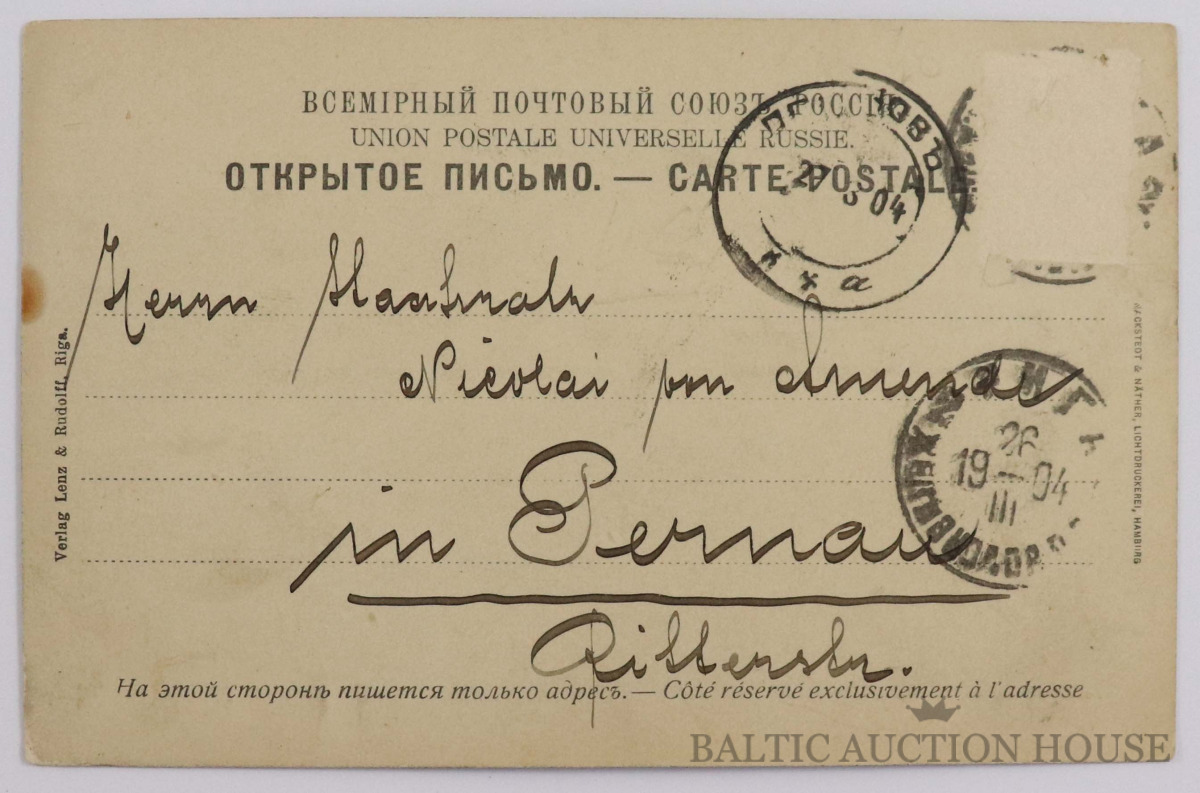 ВСЕМІРНЫЙ ПОЧТОВЫЙ СОЮЗЪ РОССІЯ
UNION POSTALE UNIVERSELLE RUSSIE.
ОТКРЫТОЕ ПИСЬМО. — CARTE POSTALE
27 3 04
Herrn
Nicolai von
26
19 — 04
III
in Pernau
Ritterstr.
На этой сторонѣ пишется только адресъ. — Côté réservé exclusivement à l'adresse
Verlag Lenz & Rudolff, Riga.
& NÄTHER, LICHTDRUCKEREI, HAMBURG
BALTIC AUCTION HOUSE